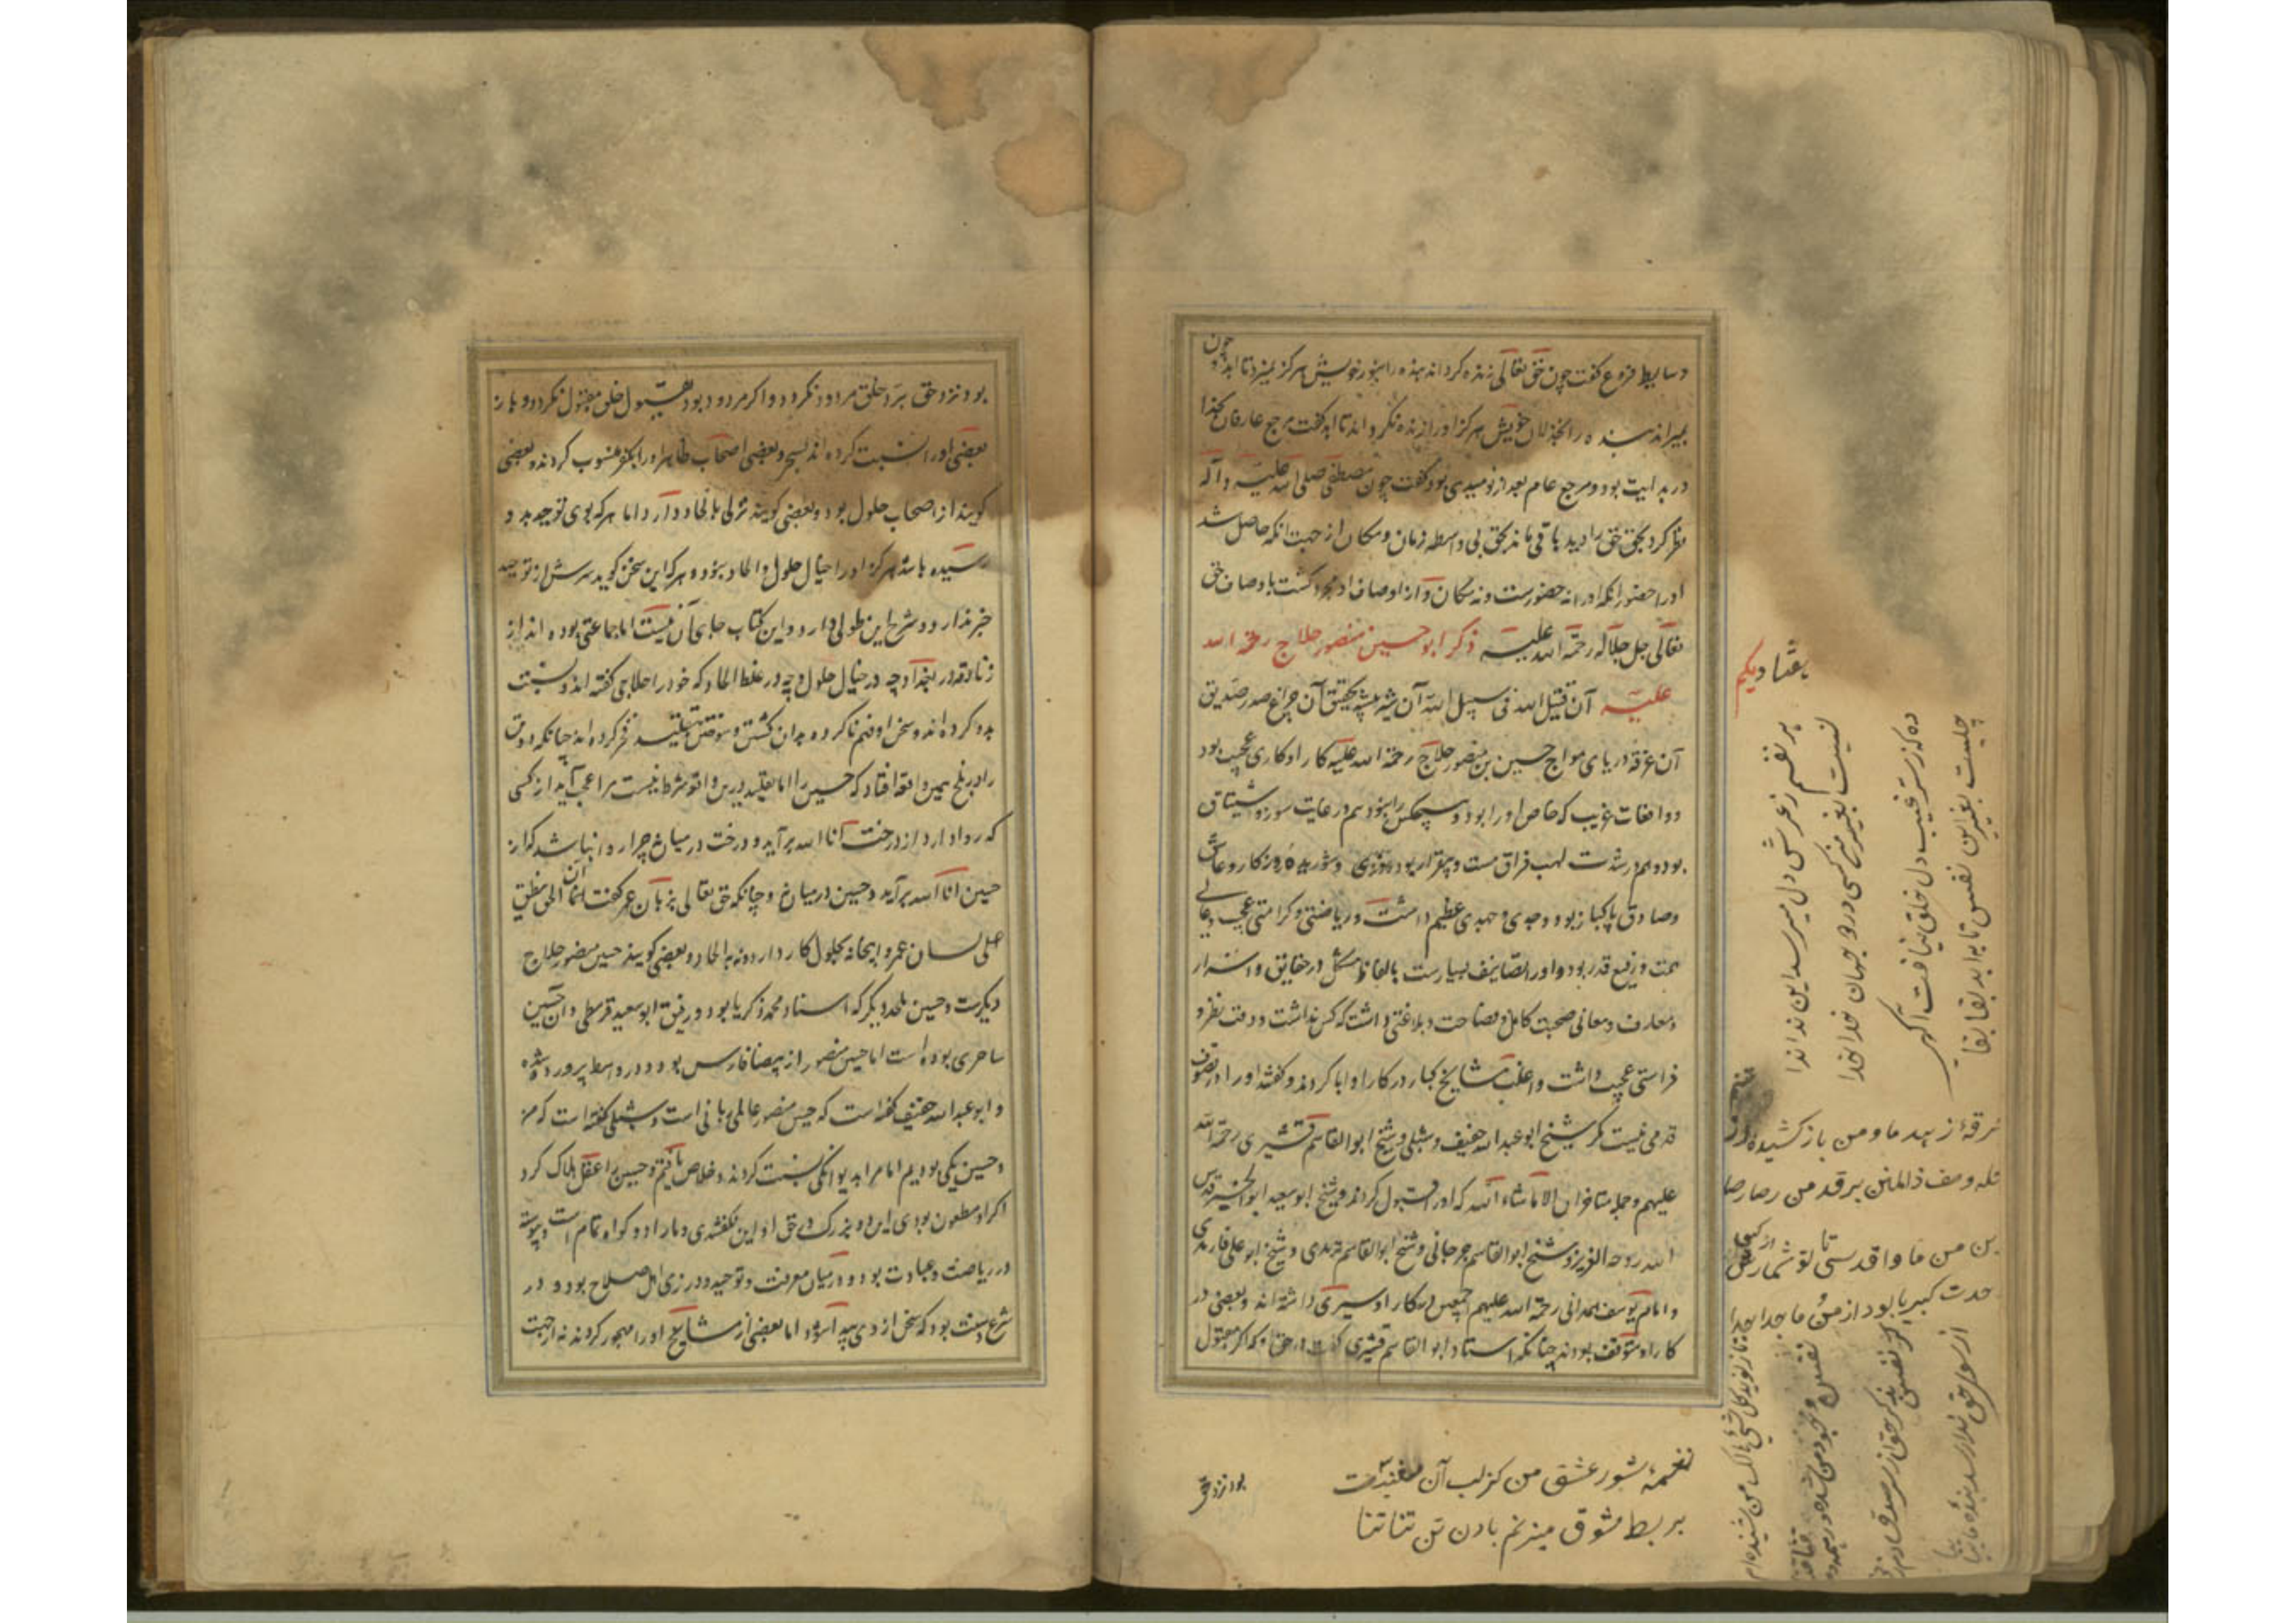 وسایط فروع گفت چون حق تعالی زنده گرداند بنده را بنور خویش هرگز نمیرد تا ابد و چون
بمیراند بنده را بخذلان خویش هرگز او را زنده نگرداند تا ابد گفت مرجع عارفان بخدا
در بدایت بود و مرجع عام بعد از نومیدی بود گفت چون مصطفی صلی الله علیه و آله
نظر کرد بحق حق را بدید باقی ماند بحق بی واسطه زمان و مکان از جهت آنکه حاصل شد
او را حضور آنکه او را نه حضورست و نه مکان و از اوصاف او مجرد گشت باوصاف حق
تعالی جل جلاله رحمة الله علیه ذکر ابو حسین منصور حلاج رحمة الله
علیه آن قتیل الله فی سبیل الله آن شیر بیشه تحقیق آن چراغ صدر صدیق
آن غرقه دریای مواج حسین بن منصور حلاج رحمة الله علیه کار او کاری عجیب بود
و واقعات غریب که خاص او را بود و هیچکس را نبود هم در غایت سوز و اشتیاق
بود و هم در شدت لهب فراق مست و بیقرار بود و شوریده روزگار و عاشق
و صادق پاکباز بود و جدی و جهدی عظیم داشت و ریاضتی و کرامتی عجیب و عالی
همت و رفیع قدر بود و او را تصانیف بسیارست بالفاظ مشکل در حقایق و اسرار
و معارف و معانی صحبت کامل و فصاحت و بلاغتی داشت که کس نداشت و دقت نظر و
فراستی عجیب داشت و اغلب مشایخ کبار در کار او ابا کردند و گفتند او را در تصوف
قدمی نیست مگر شیخ ابو عبد الله خفیف و شبلی و شیخ ابو القاسم قشیری رحمة الله
علیهم و جمله متاخران الا ما شاء الله که او را قبول کردند و شیخ ابو سعید ابو الخیر قدس
الله روحه العزیز و شیخ ابو القاسم جرجانی و شیخ ابو علی فارمدی
و امام یوسف همدانی رحمة الله علیهم اجمعین در کار او سیری داشته اند و بعضی در
کار او متوقف بودند چنانکه استاد ابو القاسم قشیری گفت در حق او که اگر مقبول
هفتاد یکم
هر نفسم ز عرش دل میرسد این ندا ندا
نیست بغیر من کسی در دو جهان خدا خدا
چیست بغیر این نفس تا به ابد بقا بقا
نغمهٔ شور عشق من کز لب آن
بربط مشوق میزنم بادن تن تنا تنا
بود نزد حق
بود نزد حق برد خلق مردود نگردد و اگر مردود بود بقبول خلق مقبول نگردد و باز
بعضی او را نسبت کرده اند بسحر و بعضی اصحاب ظاهر او را بکفر منسوب کردند و بعضی
گویند از اصحاب حلول بود و بعضی گویند تولی باتحاد دارد اما هر که بوی توحید بدو
رسیده باشد هرگز او را خیال حلول و اتحاد نبود و هر که این سخن گوید سرش از توحید
خبر ندارد و شرح این طولی دارد و این کتاب جای آن نیست اما جماعتی بوده اند از
زنادقه در بغداد چه در خیال حلول و چه در غلط اتحاد که خود را حلاجی گفته اند و نسبت
بدو کرده اند و سخن او فهم ناکرده بدان کشتن و سوختن بتقلید فخر کرده اند چنانکه دو تن
را در بلخ همین واقعه افتاد که حسین را اما تقلید درین واقعه شرط نیست مرا عجب آید از کسی
که روا دارد از درخت انا الله برآید و درخت در میان نی چرا روا نباشد که از
حسین انا الله برآید و حسین در میان نی و چنانکه حق تعالی بزبان عمر گفت ان الحق لینطق
علی لسان عمر و اینجا نه حلول کار دارد و نه اتحاد و بعضی گویند حسین منصور حلاج
دیگرست و حسین ملحد دیگر که استاد محمد زکریا بود و رفیق ابو سعید قرمطی و آن حسین
ساحری بوده است اما حسین منصور از بیضا فارس بود و در واسط پرورده شده
و ابو عبد الله خفیف گفته است که حسین منصور عالمی ربانی است و شبلی گفته است که من
و حسین یکی بودیم اما مرا بدیوانگی نسبت کردند و خلاص یافتم و حسین را عقل هلاک کرد
اگر او مطعون بودی این دو بزرگ در حق او این نگفتندی و ما را دو گواه تمام است و پیوسته
در ریاضت و عبادت بود و در میان معرفت و توحید و در زی اهل صلاح بود و در
شرع و سنت بود که سخن از وی پیدا شود اما بعضی از مشایخ او را مهجور کردند نه از جهت